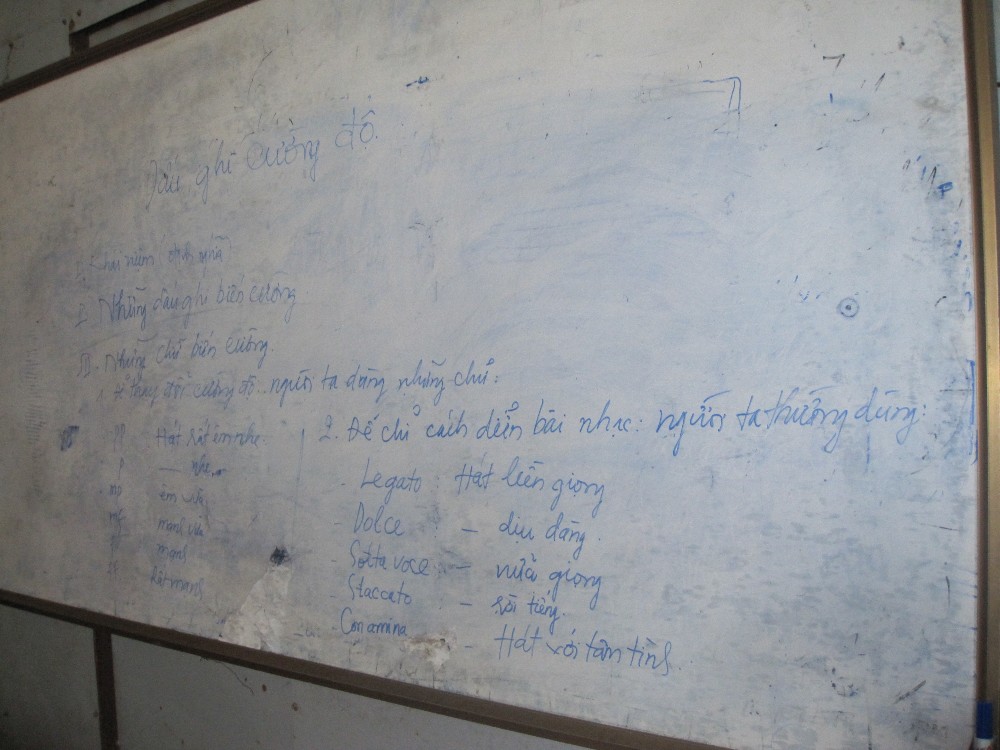 Dấu ghi cường độ.
I. Khái niệm định nghĩa
II. Những dấu ghi biến cường.
III. Những chữ biến cường.
thay đổi cường độ người ta dùng những chữ:
pp Hát rất êm nhẹ
p — nhẹ
mp êm vừa
mf mạnh vừa
f mạnh
ff Rất mạnh
2. Để chỉ cách diễn bài nhạc: người ta thường dùng:
- Legato : Hát liền giọng
- Dolce — dịu dàng.
- Sotta voce — nửa giọng
- Staccato — rời tiếng.
- Conamina — Hát với tâm tình.